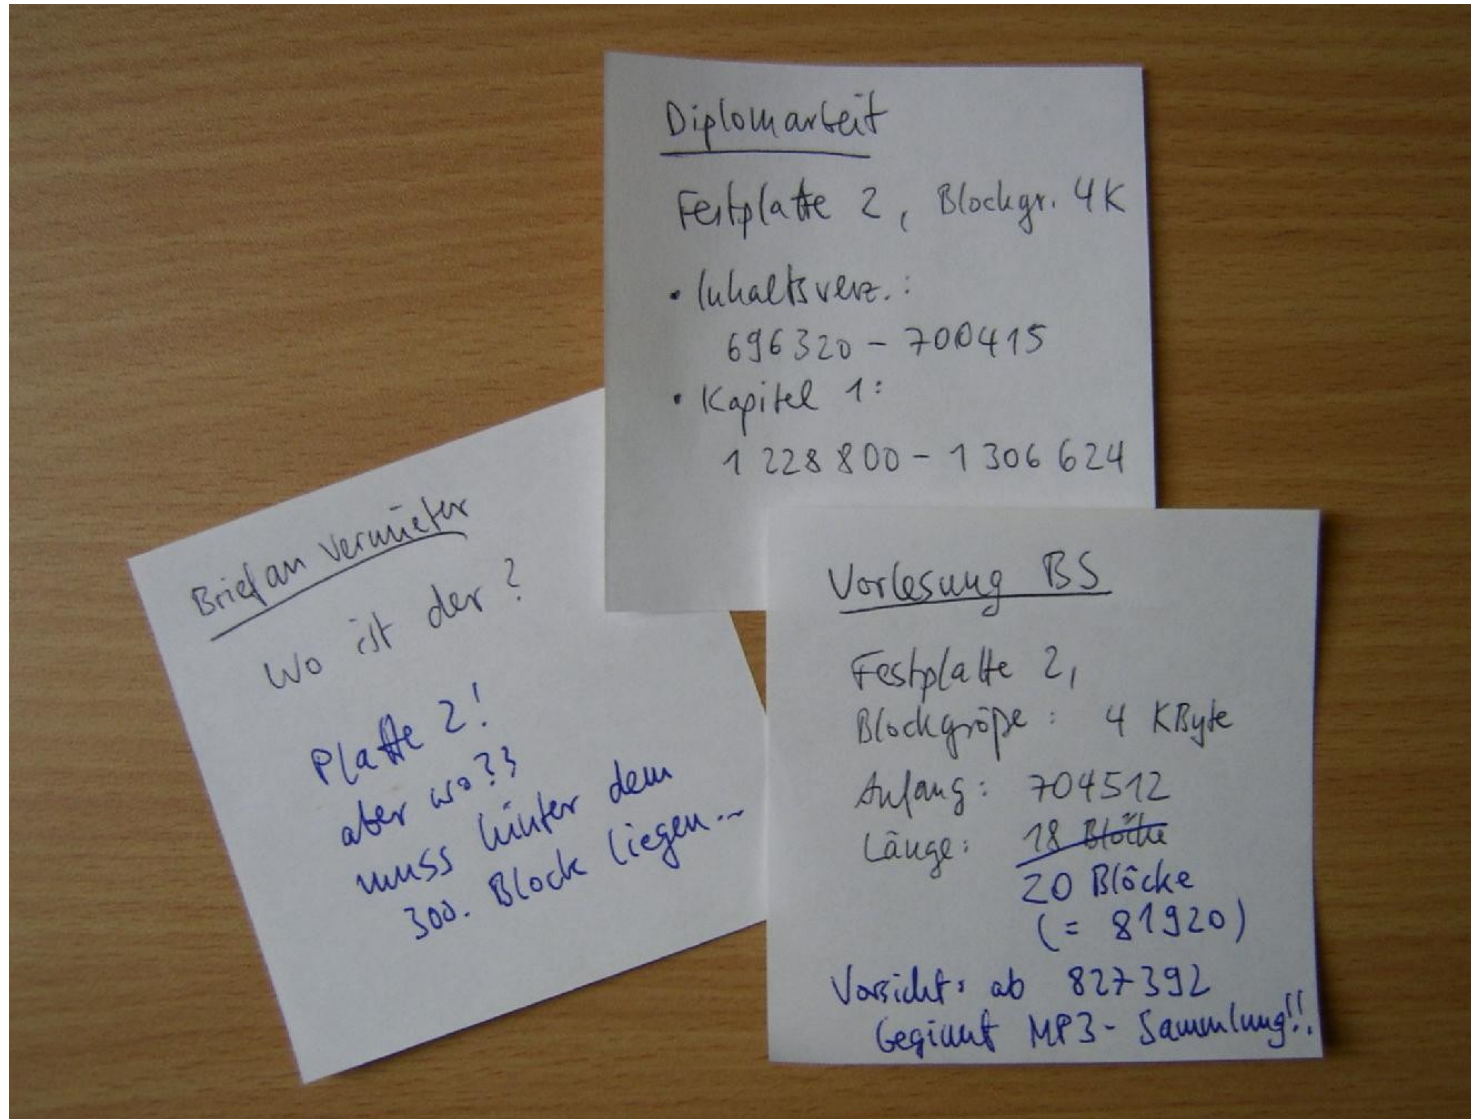 Diplomarbeit
Festplatte 2, Blockgr. 4K
• Inhaltsverz.:
696320 – 700415
• Kapitel 1:
1 228 800 – 1 306 624
Brief an Vermieter
Wo ist der?
Platte 2!
aber wo??
muss hinter dem
300. Block liegen...
Vorlesung BS
Festplatte 2,
Blockgröße: 4 KByte
Anfang: 704512
Länge: 18 Blöcke
20 Blöcke
(= 81920)
Vorsicht: ab 827392
beginnt MP3-Sammlung!!